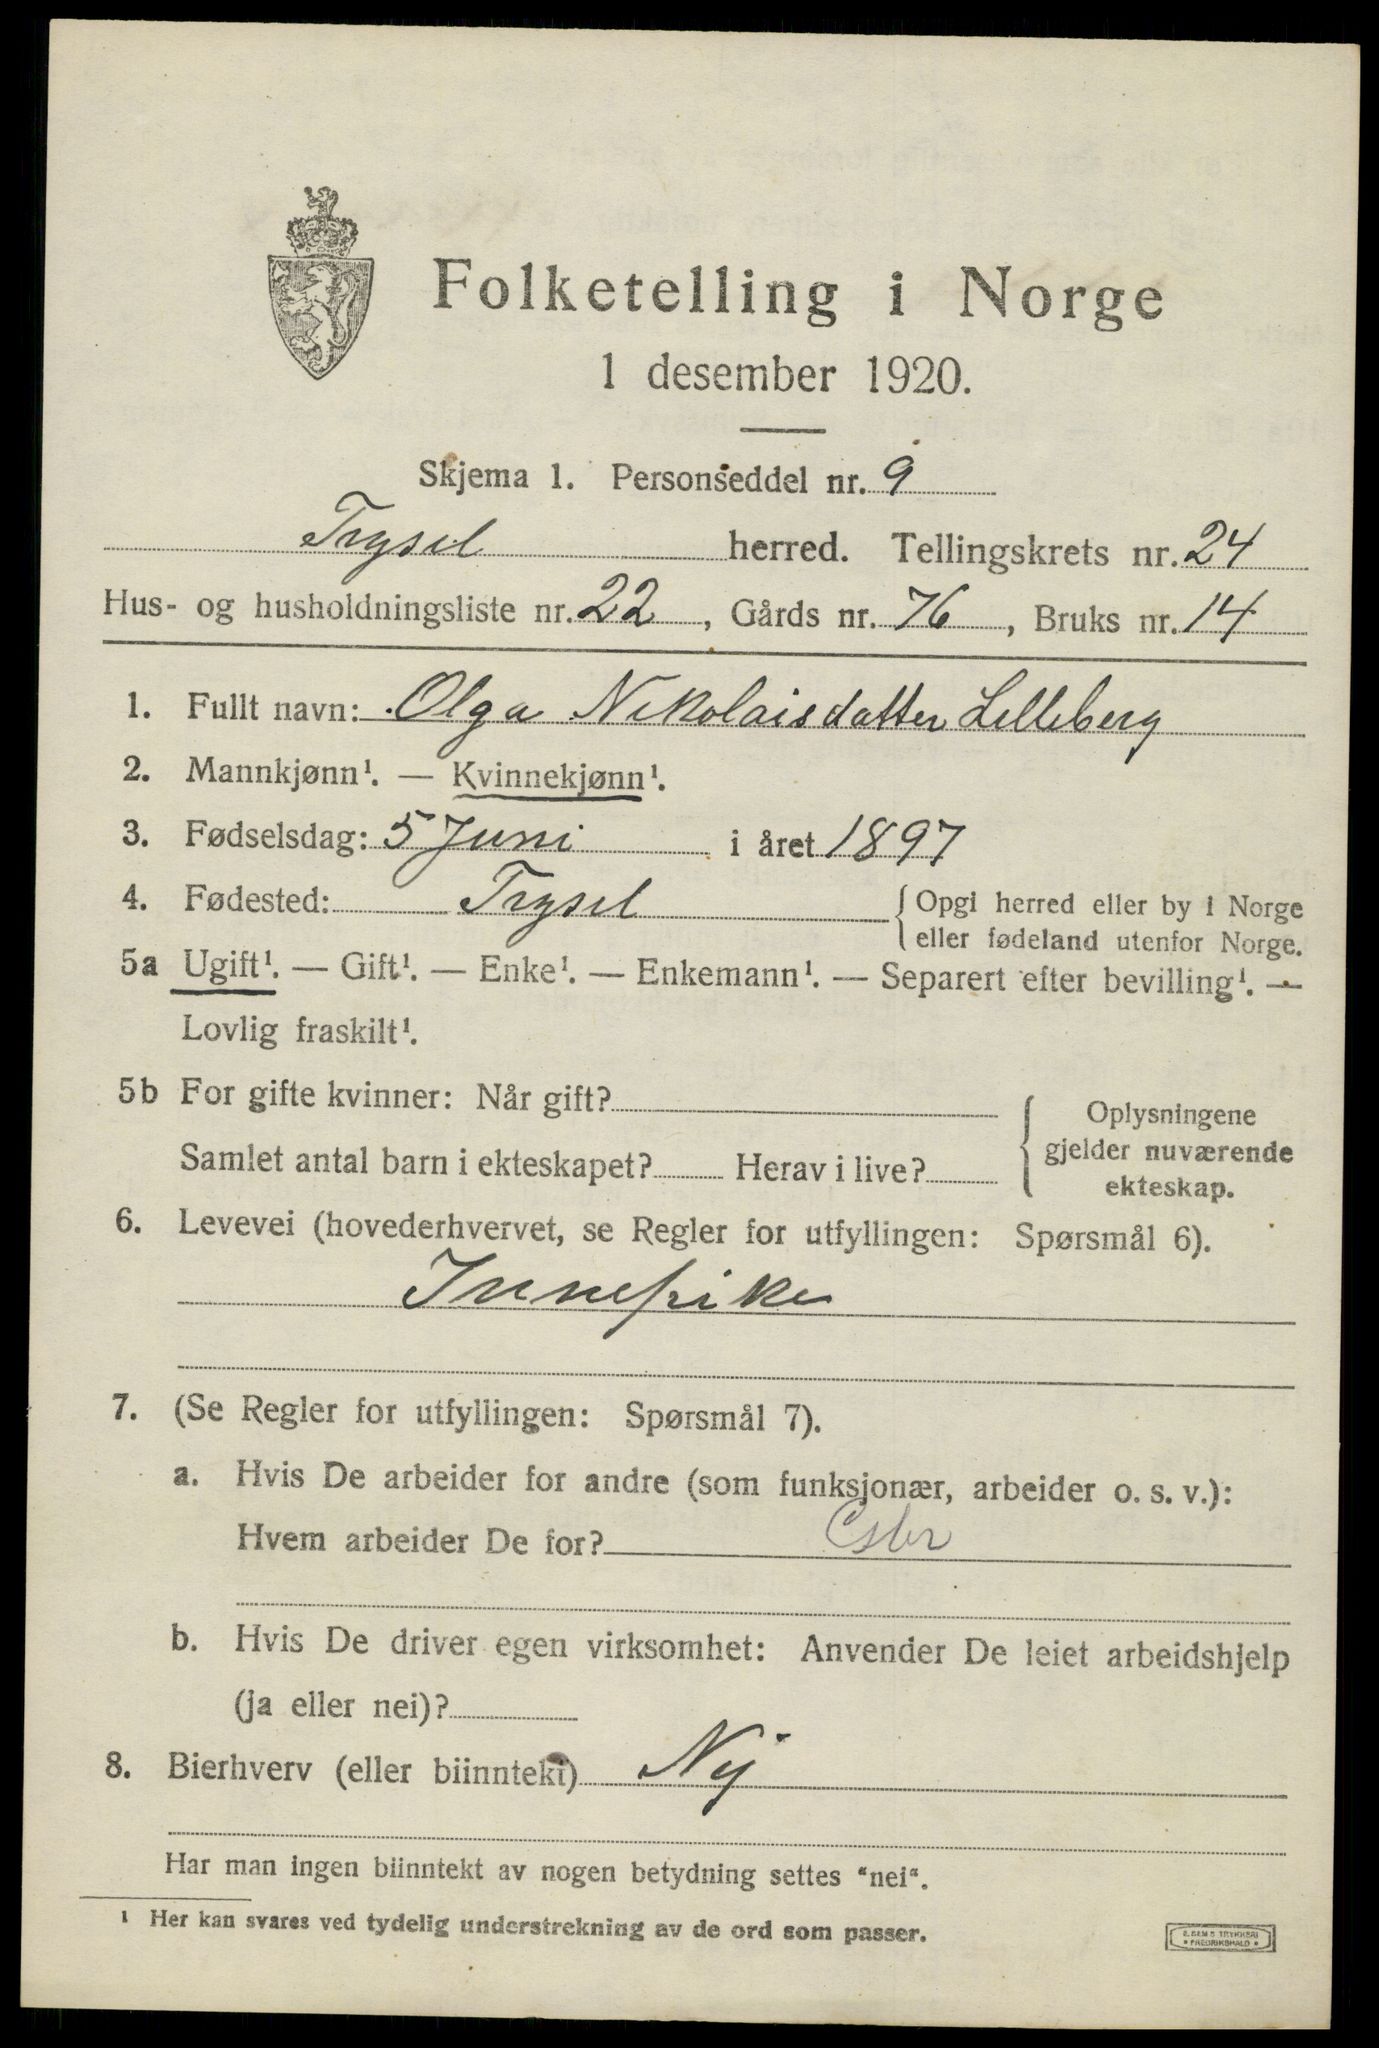 Folketelling i Norge
1 desember 1920.
Skjema 1. Personseddel nr. 9
Trysil herred. Tellingskrets nr. 24
Hus- og husholdningsliste nr. 22, Gårds nr. 76, Bruks nr. 14
1. Fullt navn: Olga Nikolaisdatter Lilleberg
2. Mannkjønn¹. — Kvinnekjønn¹.
3. Fødselsdag: 5 Juni i året 1897
4. Fødested: Trysil { Opgi herred eller by i Norge
eller fødeland utenfor Norge.
5a Ugift¹. — Gift¹. — Enke¹. — Enkemann¹. — Separert efter bevilling¹. —
Lovlig fraskilt¹.
5b For gifte kvinner: Når gift?
Samlet antal barn i ekteskapet? Herav i live?
{ Oplysningene
gjelder nuværende
ekteskap.
6. Levevei (hovederhvervet, se Regler for utfyllingen: Spørsmål 6).
Innepike
7. (Se Regler for utfyllingen: Spørsmål 7).
a. Hvis De arbeider for andre (som funksjonær, arbeider o. s. v.):
Hvem arbeider De for?
b. Hvis De driver egen virksomhet: Anvender De leiet arbeidshjelp
(ja eller nei)?
8. Bierhverv (eller biinntekt) Nij
Har man ingen biinntekt av nogen betydning settes "nei".
¹ Her kan svares ved tydelig understrekning av de ord som passer.
E. SEM'S TRYKKERI
• FREDRIKSHALD •